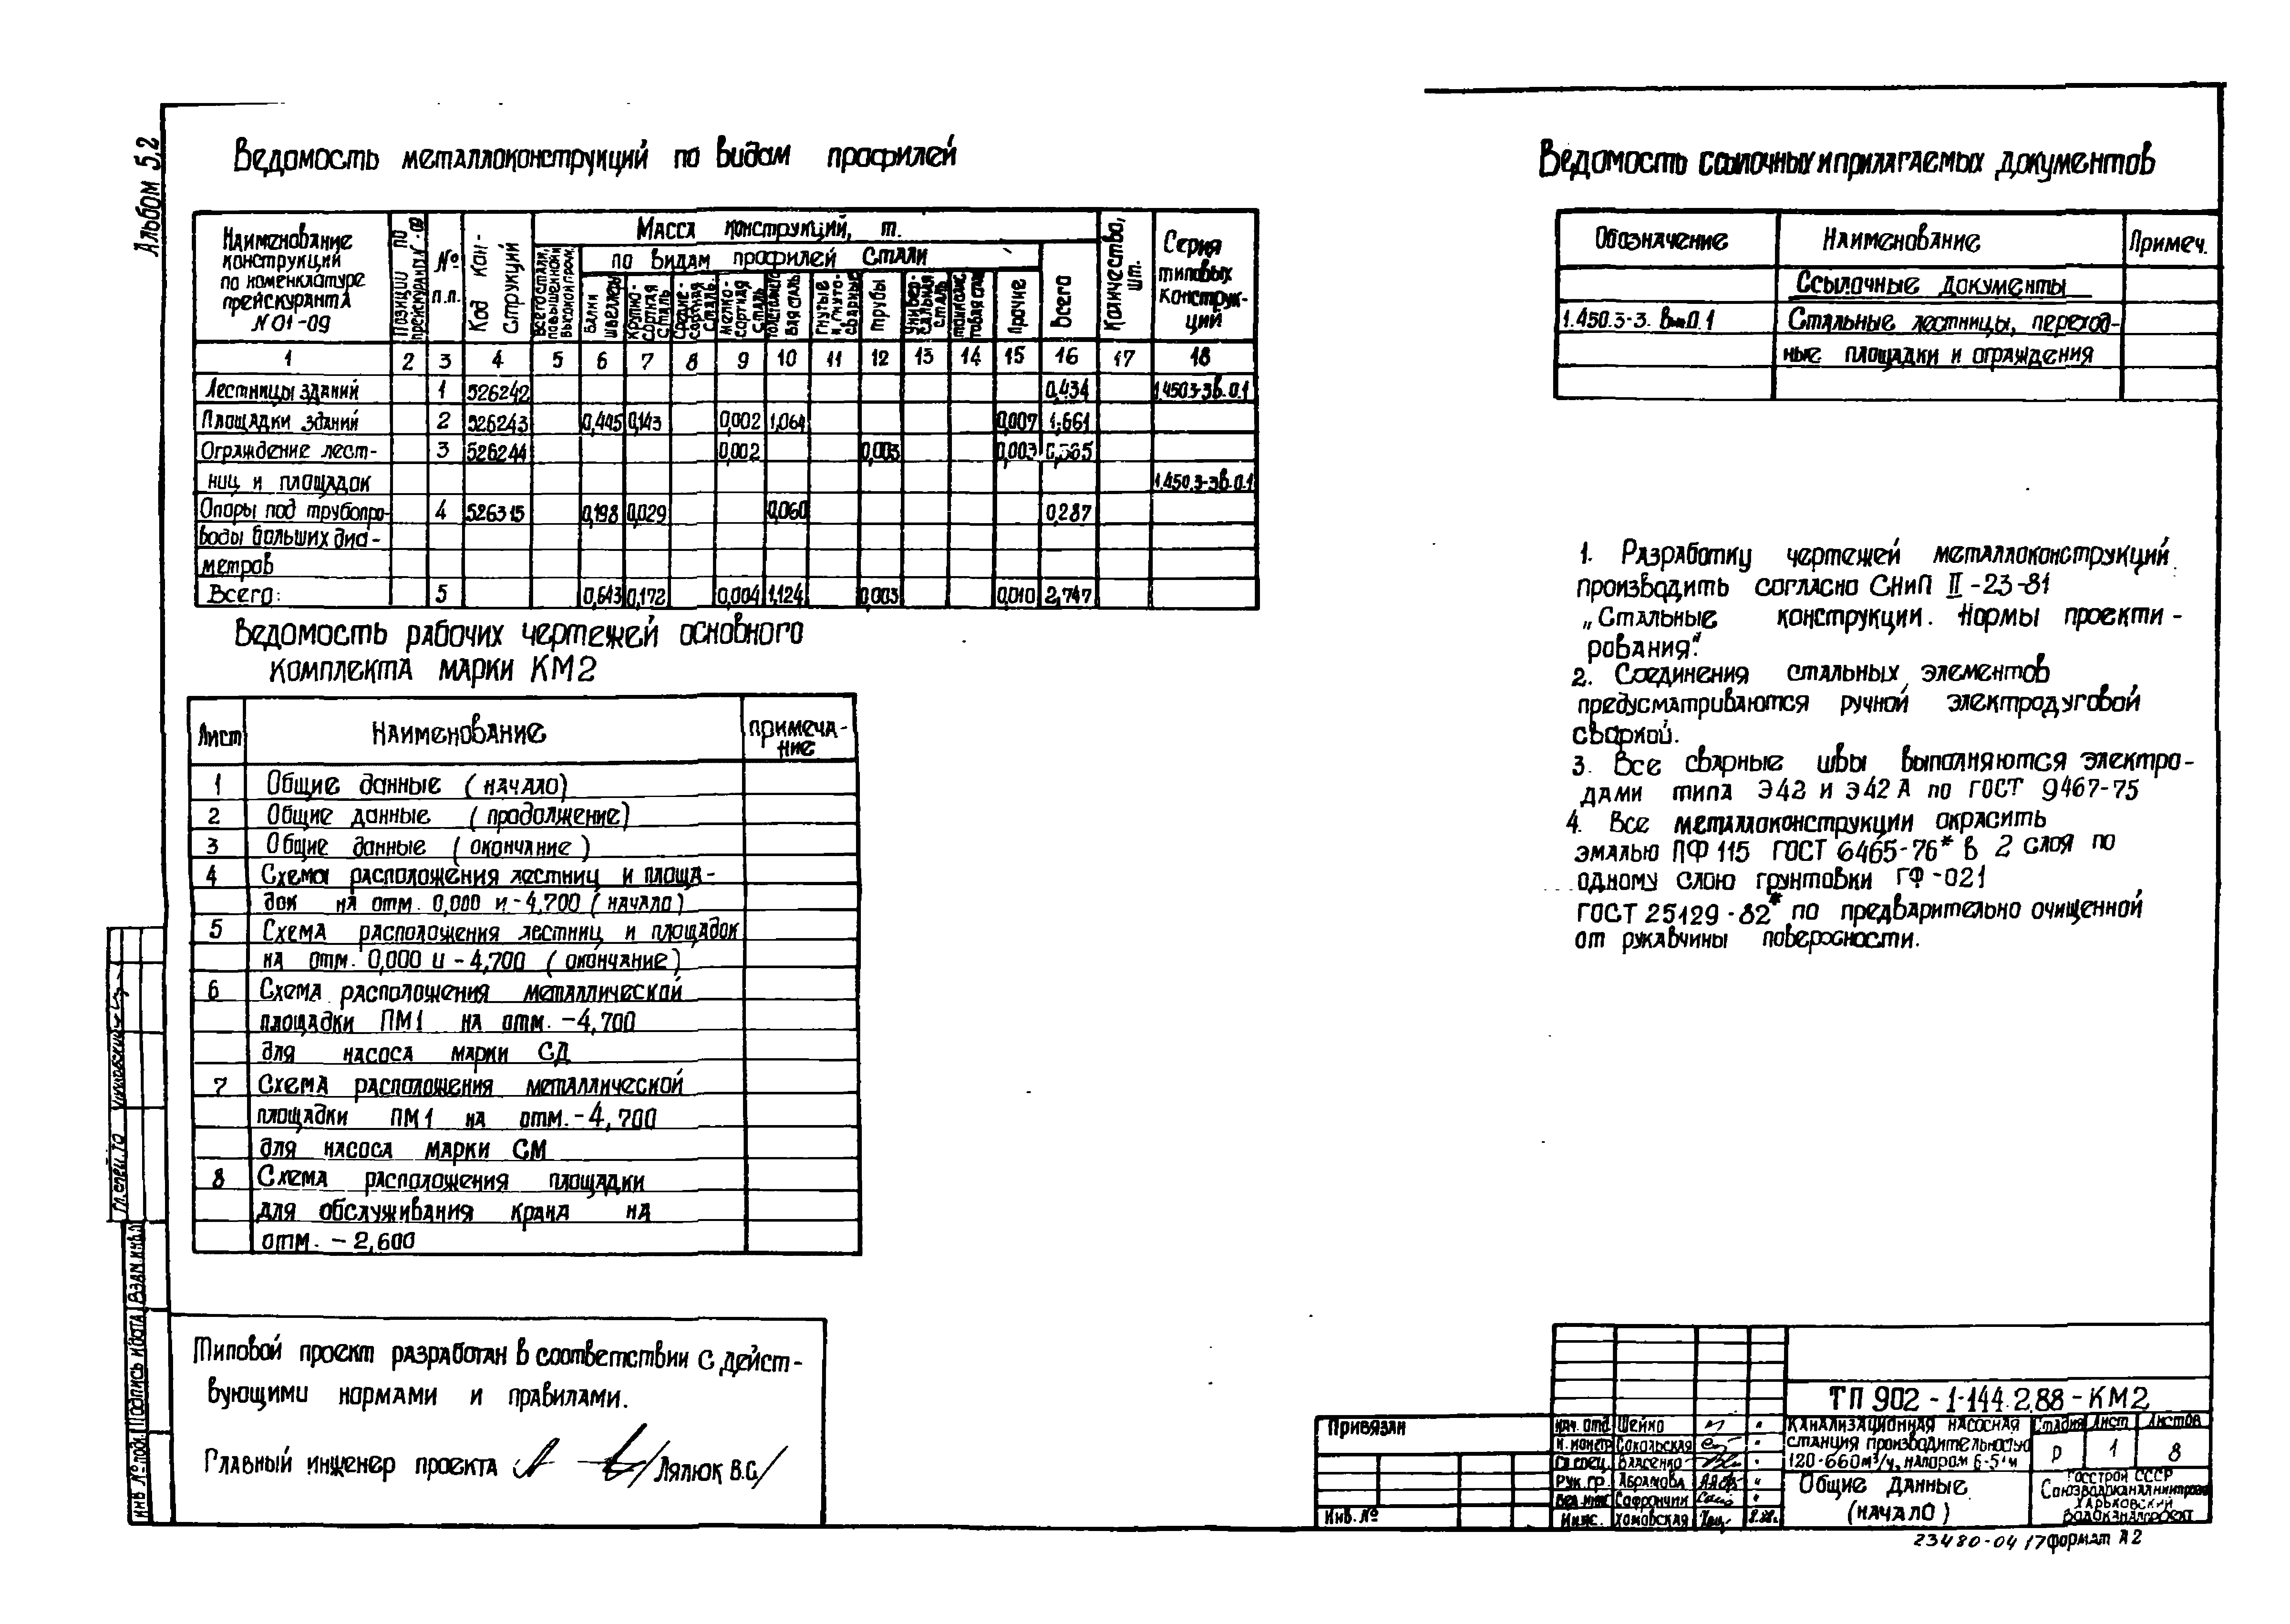 Альбом 5.2
Ведомость металлоконструкций по видам профилей
Наименование конструкций по номенклатуре прейскуранта N 01-09
Позиции по прейскуранту
№ п.п.
Код конструкций
Масса конструкций, т.
Всего стали, повышенной и высокой прочн.
по видам профилей стали
Балки швеллеры
Крупносортная сталь
Среднесортная сталь
Мелкосортная сталь
Толстолистовая сталь
Гнутые и гнутосварные
Трубы
Универсальная сталь
Прочие
Всего
Количество, шт.
Серия типовых конструкций
1 2 3 4 5 6 7 8 9 10 11 12 13 14 15 16 17 18
Лестницы зданий 1 526242 0,434 1.450.3-3в.0.1
Площадки зданий 2 526243 0,445 0,143 0,002 1,064 0,007 1.661
Ограждение лест- 3 526244 0,002 0,003 0,003 0,365
ниц и площадок 1.450.3-3в.0.1
Опоры под трубопро- 4 526315 0,198 0,029 0,060 0,287
воды больших диа-
метров
Всего: 5 0,643 0,172 0,004 1,124 0,003 0,010 2,747
Ведомость рабочих чертежей основного
комплекта марки КМ2
Лист Наименование Примеча-
ние
1 Общие данные (начало)
2 Общие данные (продолжение)
3 Общие данные (окончание)
4 Схема расположения лестниц и площа-
док на отм. 0,000 и -4,700 (начало)
5 Схема расположения лестниц и площадок
на отм. 0,000 и -4,700 (окончание)
6 Схема расположения металлической
площадки ПМ1 на отм. -4,700
для насоса марки СД
7 Схема расположения металлической
площадки ПМ1 на отм. -4,700
для насоса марки СМ
8 Схема расположения площадки
для обслуживания крана на
отм. -2,600
Типовой проект разработан в соответствии с дейст-
вующими нормами и правилами.
Главный инженер проекта /Лялюк В.С./
Ведомость ссылочных и прилагаемых документов
Обозначение Наименование Примеч.
Ссылочные документы
1.450.3-3. Вып.0.1 Стальные лестницы, переход-
ные площадки и ограждения
1. Разработку чертежей металлоконструкций
производить согласно СНиП II-23-81
„Стальные конструкции. Нормы проекти-
рования".
2. Соединения стальных элементов
предусматриваются ручной электродуговой
сваркой.
3. Все сварные швы выполняются электро-
дами типа Э42 и Э42А по ГОСТ 9467-75
4. Все металлоконструкции окрасить
эмалью ПФ 115 ГОСТ 6465-76* в 2 слоя по
одному слою грунтовки ГФ-021
ГОСТ 25129-82* по предварительно очищенной
от ржавчины поверхности.
Гл.спец. ТО
Взам.инв.№
Подпись и дата
Инв.№ подл.
Привязан
Инв.№
Нач. отд. Шейко
Н. контр. Сокольская
Гл.спец. Власенко
Рук.гр. Абрамова
Вед.инж. Сафрончик
Инж. Хомовская
ТП 902-1-144.2.88-КМ2
Канализационная насосная
станция производительностью
120-660м³/ч, напором 6-5 м
Стадия Лист Листов
Р 1 8
Общие данные
(начало)
Госстрой СССР
Союзводоканалниипроект
Харьковский
Водоканалпроект
23480-04 17 формат А2